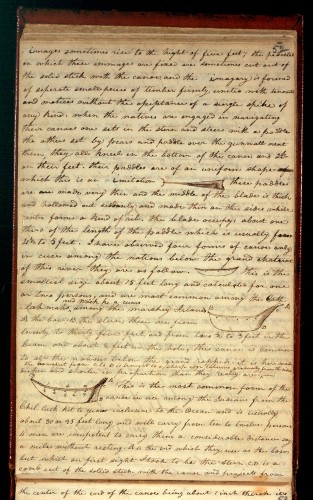 Images sometimes rise to the hight of five feet; the pedestals
on which these immages are fixed are sometimes cut out of
the solid stick with the canoe and the imagary is formed
of seperate small pieces of timber firmly united with tenants
and motices without the assistance of a single spike of
any kind. when the natives are engaged in navigating
their canoes one sets in the stern and steers with a paddle
the others set by pears and paddle over the gunwall next
them, they all kneel in the bottom of the canoe and set
their feet. their paddles are of an uniform shape
which this is an imitation these paddles
are made very thin and the middle of the blade is thick
and hollowed out suddonly and made thin on the sides while
center forms a kind of rib. the blade occupys about one
third of the length of the paddle which is usually from
4½ to 5 feet. I have observed four forms of canoe only
in uce among the nations below the grand chatarac
of this river they are as follow. this is the
smallest size about 15 feet long and calculated for one
or two persons, and are most common among the
among the marshey Islands
from
twenty to thirty five feet and from two ½ to 3 feet in the
beam and about 2 feet in the hole; this canoe is common
to all the nations below the grand rappids. it is here made
deeper and shorter in proportion than they really are.
This is the most common form of the
canoe in uce among the Indians from the
Chil-luck-kit-te-quaw inclusive to the Ocean and is usually
about 30 or 35 feet long and will carry from ten to twelve persons.
4 men are competent to carry them a considerable distance say
a mile without resting. A is the end which they use as the bow.
but which on first sight I took to be the stern C.D. is a
comb cut of the solid stick with the canoe and projects from
the center of the end of the canoe being about 1 inch thick.